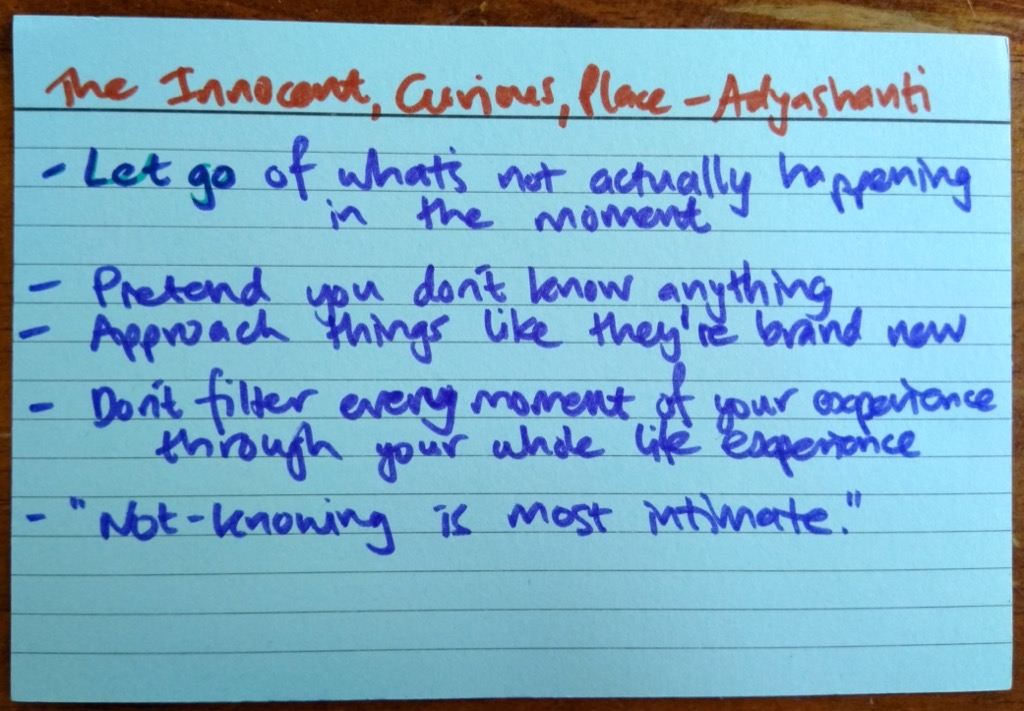 The Innocent, Curious, Place - Adyashanti
- Let go of what's not actually happening
in the moment
- Pretend you don't know anything
- Approach things like they're brand new
- Don't filter every moment of your experience
through your whole life experience
- "Not-knowing is most intimate."